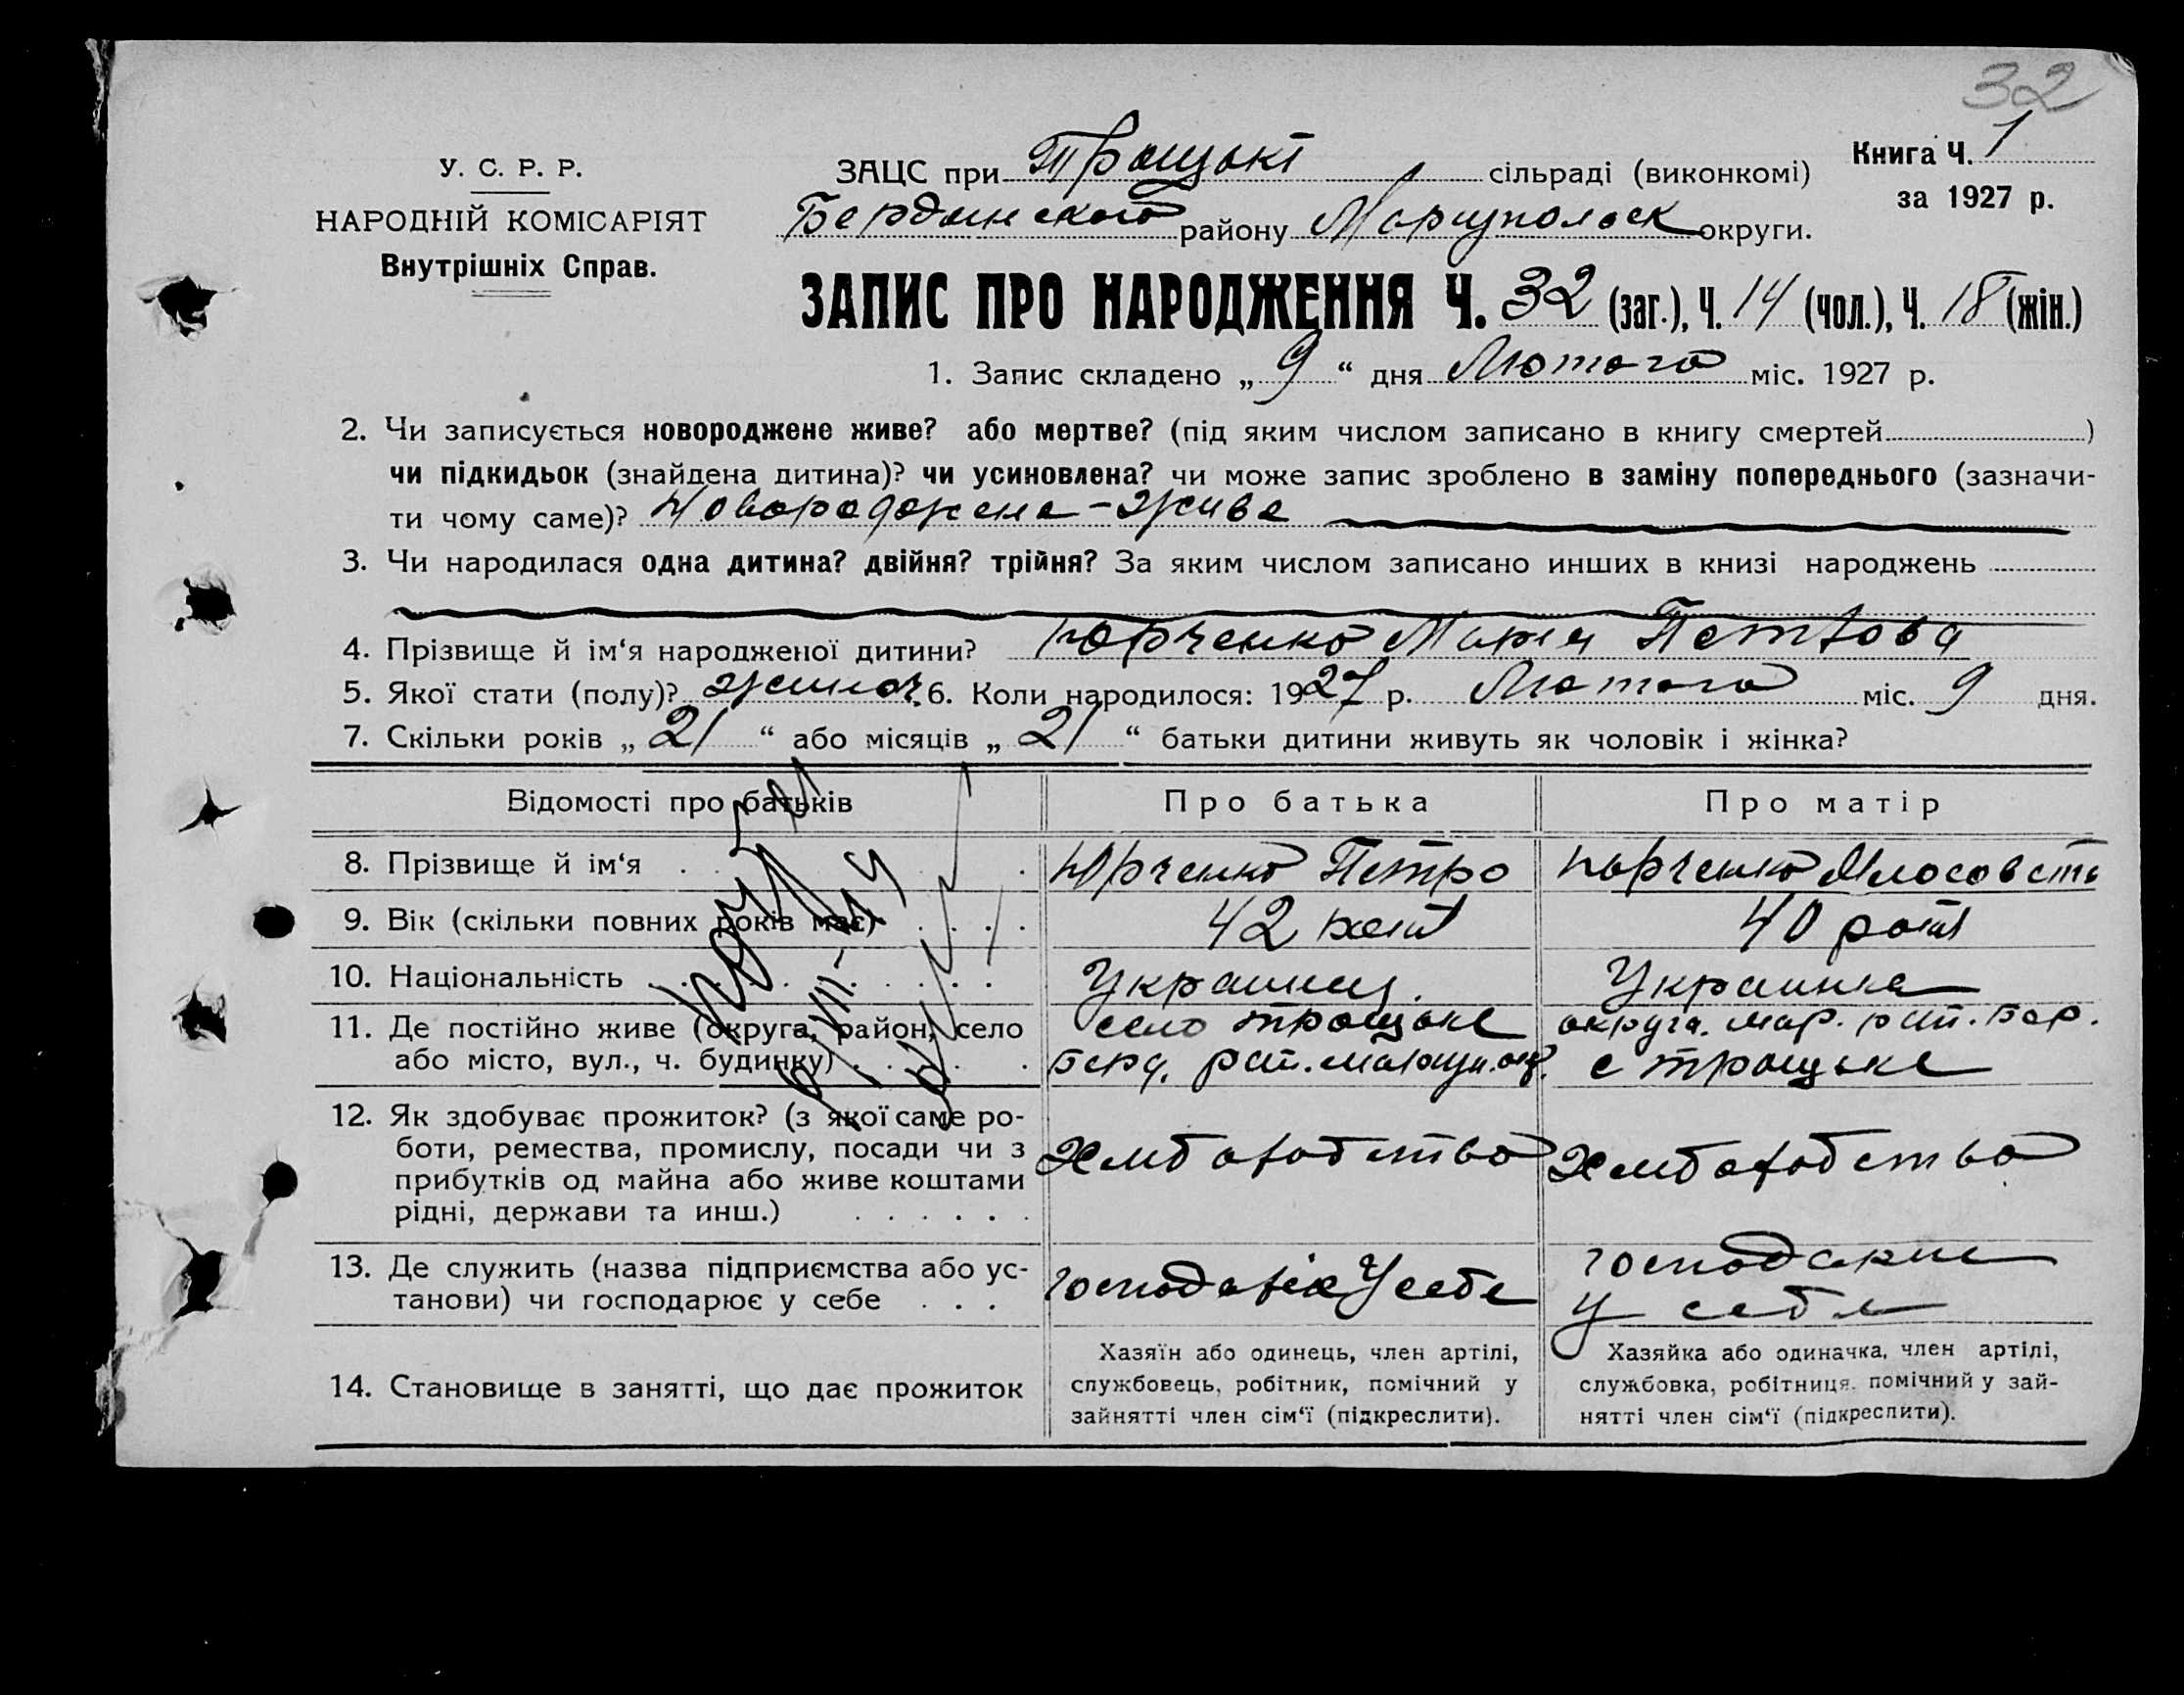 32
У. С. Р. Р.
НАРОДНІЙ КОМІСАРІЯТ
Внутрішніх Справ.
ЗАЦС при Троцькі сільраді (виконкомі)
Книга Ч. 1
за 1927 р.
Бердянского району Мариупольск округи.
ЗАПИС ПРО НАРОДЖЕННЯ Ч. 32 (заг.), Ч. 14 (чол.), Ч. 18 (жін.)
1. Запис складено „ 9 “ дня Лютого міс. 1927 р.
2. Чи записується новороджене живе? або мертве? (під яким числом записано в книгу смертей )
чи підкидьок (знайдена дитина)? чи усиновлена? чи може запис зроблено в заміну попереднього (зазначи-
ти чому саме)? Новороджена - жива
3. Чи народилася одна дитина? двійня? трійня? За яким числом записано инших в книзі народжень
4. Прізвище й ім‘я народженої дитини? Юрченко Марія Петрова
5. Якої стати (полу)? жиноч. 6. Коли народилося: 1927 р. Лютого міс. 9 дня.
7. Скільки років „ 21 “ або місяців „ 21 “ батьки дитини живуть як чоловік і жінка?
Відомості про батьків
Про батька
Про матір
8. Прізвище й ім‘я
Юрченко Петро
Юрченко
9. Вік (скільки повних років має)
42
40
10. Національність
Украинец.
Украинка
11. Де постійно живе (округа, район, село
або місто, вул., ч. будинку)
село троцьке
Берд. рай.
округа. мар. рай. бер.
с троцьке
12. Як здобуває прожиток? (з якої саме ро-
боти, ремества, промислу, посади чи з
прибутків од майна або живе коштами
рідні, держави та инш.)
Хлиборобство
Хлиборобство
13. Де служить (назва підприємства або ус-
танови) чи господарює у себе
У себе
у себе
14. Становище в занятті, що дає прожиток
Хазяїн або одинець, член артілі,
службовець, робітник, помічний у
зайнятті член сім‘ї (підкреслити).
Хазяйка або одиначка, член артілі,
службовка, робітниця, помічний у зай-
нятті член сім‘ї (підкреслити).